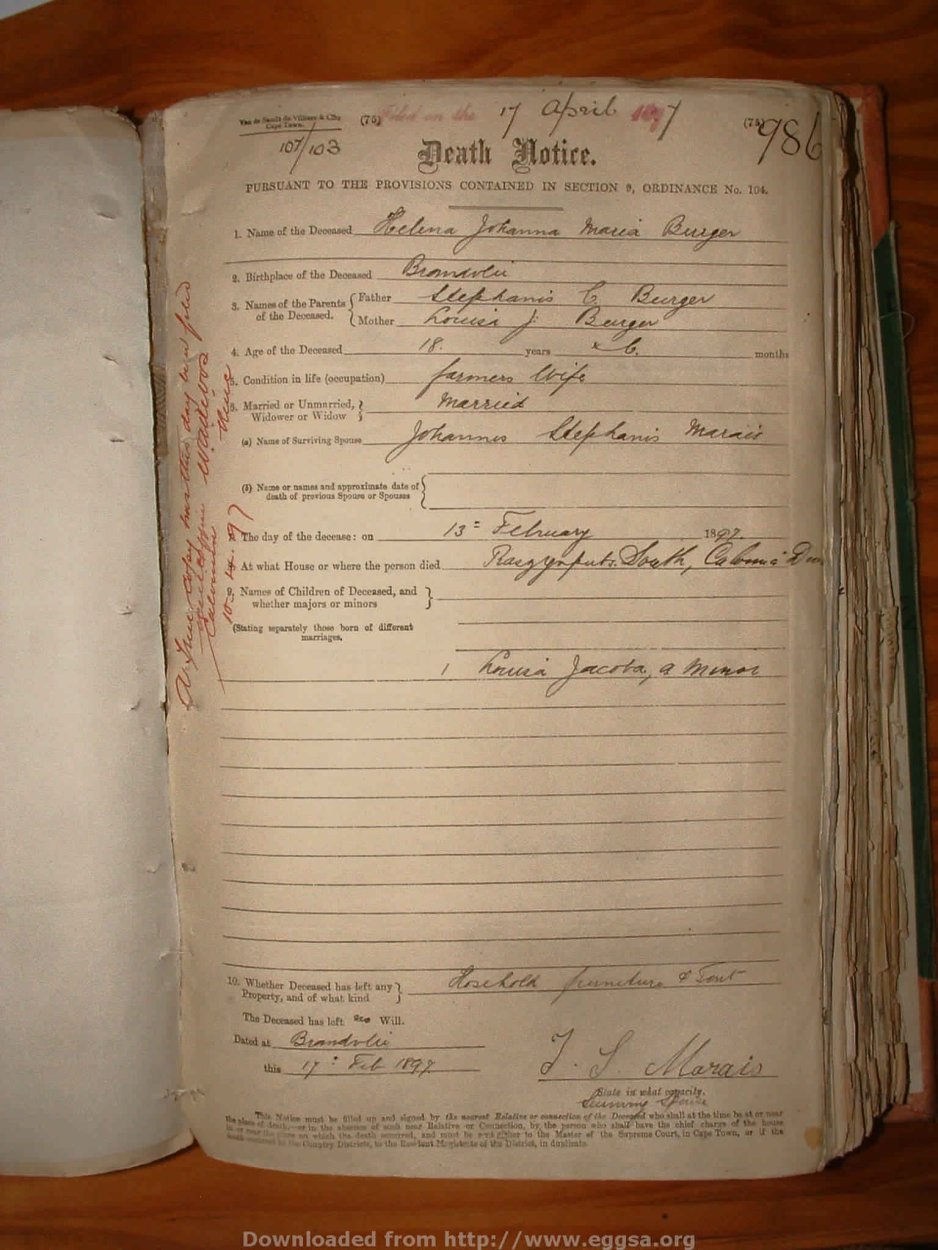 Van de Sandt de Villiers & Co
Cape Town.
(75) Filed on the 17 April 1897 (75)
107/103
986
Death Notice.
PURSUANT TO THE PROVISIONS CONTAINED IN SECTION 9, ORDINANCE No. 104.
1. Name of the Deceased Helena Johanna Maria Burger
2. Birthplace of the Deceased Brandvlei
3. Names of the Parents of the Deceased. Father Stephanis C. Burger
Mother Louisa J. Burger
4. Age of the Deceased 18. years & 6. months
5. Condition in life (occupation) farmers Wife
6. Married or Unmarried, Widower or Widow Married
(a) Name of Surviving Spouse Johannes Stephanis Marais
(b) Name or names and approximate date of
death of previous Spouse or Spouses
The day of the decease: on 13 February 1897
At what House or where the person died South,
9. Names of Children of Deceased, and
whether majors or minors
(Stating separately those born of different
marriages,
1 Louisa Jacoba, a Minor
10. Whether Deceased has left any
Property, and of what kind
Hosehold furniture &
The Deceased has left no Will.
Dated at Brandvlei
this 17 Feb 1897
J. S. Marais
State in what capacity.
Spouse
This Notice must be filled up and signed by the nearest Relative or connection of the Deceased who shall at the time be at or near
the place of death,—or in the absence of such near Relative or Connection, by the person who shall have the chief charge of the house
in or near the place on which the death occurred, and must be sent either to the Master of the Supreme Court, in Cape Town, or if the
death occurred in the Country Districts, to the Resident Magistrate of the District, in duplicate.
A True Copy
10.4.97
Downloaded from http://www.eggsa.org